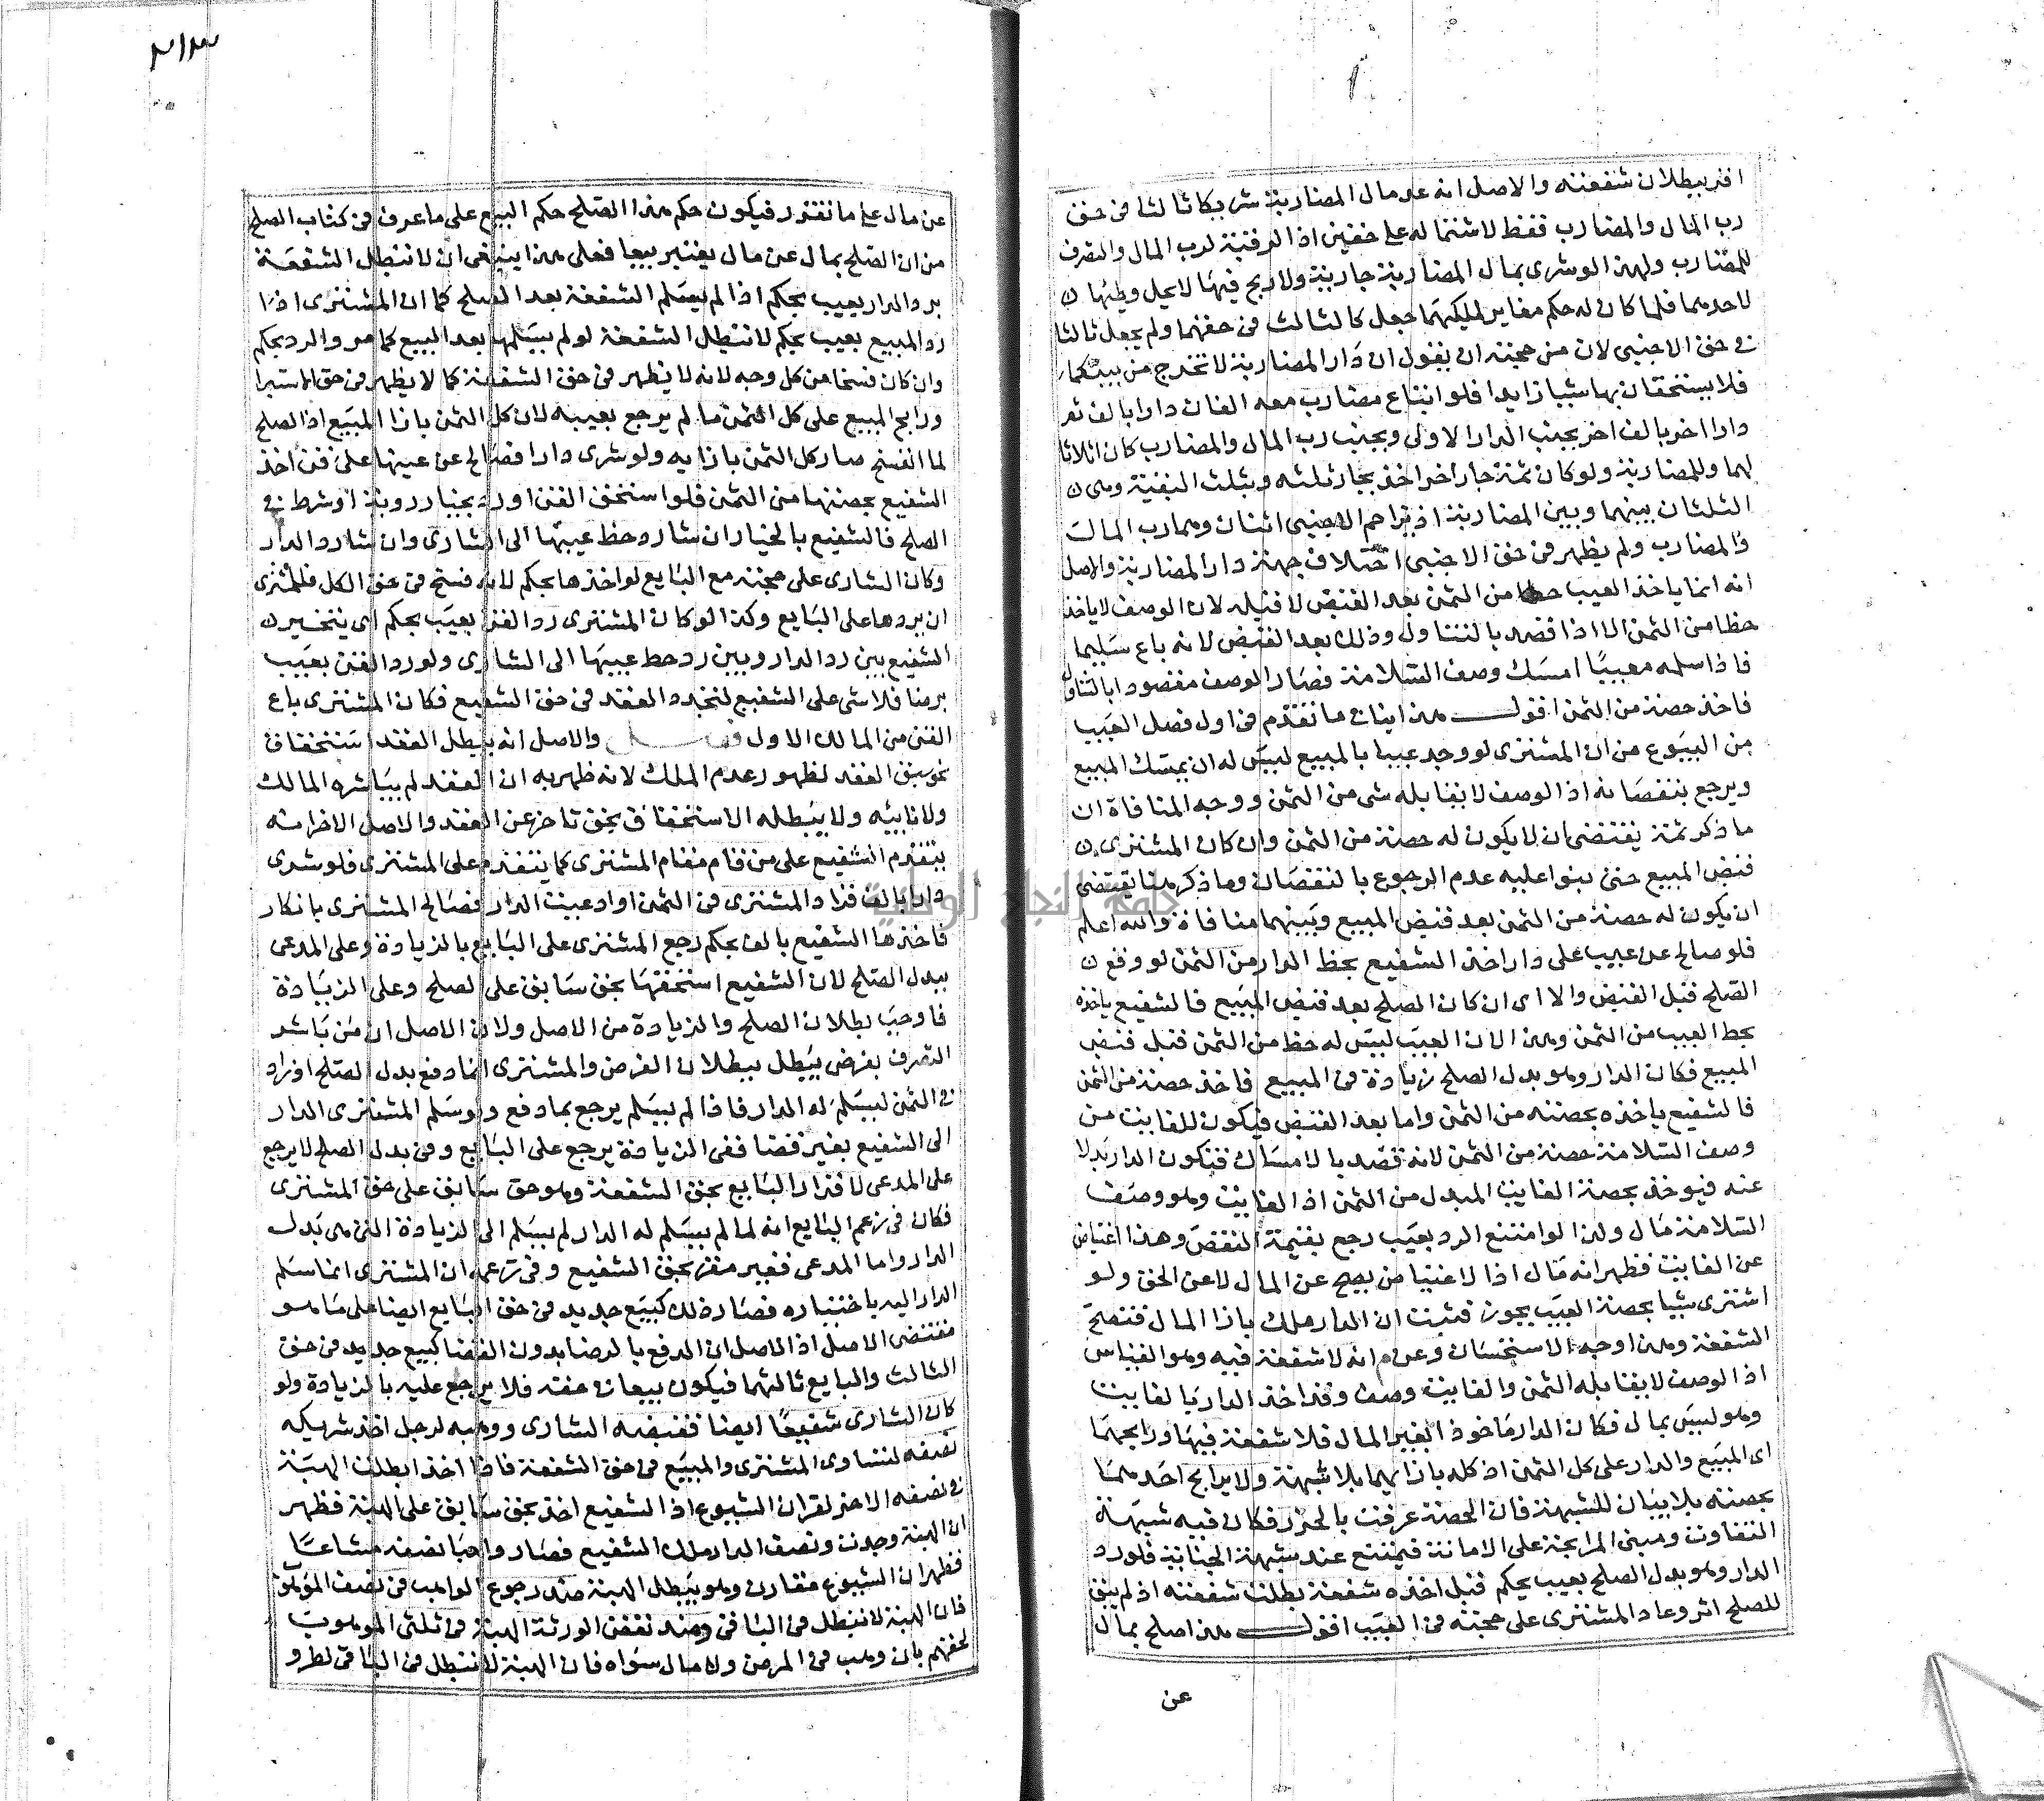 اقر ببطلان شفعته والاصل انه عد مال المضاربة شريكا ثالثا في حق
رب المال والمضارب فقط لاشتماله على حقين اذ الرقبة لرب المال والتصرف
للمضارب ولهذا لو شرى بمال المضاربة جارية ولا ربح فيها لا يحل وطئها
لاحدهما فلما كان له حكم مغاير لملكيهما جعل كالثالث في حقهما ولم يجعل ثالثا
في حق الاجنبي لان من حجته ان يقول ان دار المضاربة لا تخرج من بينكما
فلا يستحقان بها شيا زايدا فلو ابتاع مضارب معه الفان دارا بالف ثم
دارا اخر بالف اخر بجنب الدار الاولى وبجنب رب المال والمضارب كان اثلاثا
لهما وللمضاربة ولو كان ثمة جار اخر اخذ بجاره ثلثه وثلث البقية وهي
الثلثان بينهما وبين المضاربة اذ يزاحم الاجنبي اثنان وهما رب المال
والمضارب ولم يظهر في حق الاجنبي اختلاف جهة دار المضاربة والاصل
انه انما ياخذ العيب حظا من الثمن بعد القبض لا قبله لان الوصف لا ياخذ
حظا من الثمن الا اذا قصد بالتناول وذلك بعد القبض لانه باع سليما
فاذا سلمه معيبا امسك وصف السلامة فصار الوصف مقصودا بالتناول
فاخذ حصة من الثمن اقول هذا ينافي ما تقدم في اول فصل العيب
من البيوع من ان المشتري لو وجد عيبا بالمبيع ليس له ان يمسك المبيع
ويرجع بنقصانه اذ الوصف لا يقابله شى من الثمن ووجه المنافاة ان
ما ذكر ثمة يقتضي ان لا يكون له حصة من الثمن وان كان المشترى
قبض المبيع حتى بنوا عليه عدم الرجوع بالنقصان وما ذكر هنا يقتضي
ان يكون له حصة من الثمن بعد قبض المبيع وبينهما منافاة والله اعلم
فلو صالح عن عيب على دار اخذ الشفيع بحظ الدار من الثمن لو وقع
الصلح قبل القبض والا اى ان كان الصلح بعد قبض المبيع فالشفيع ياخذه
بحط العيب من الثمن وهذا لان العيب ليس له حظ من الثمن قبل قبض
المبيع فكان الدار وهو بدل الصلح زيادة في المبيع فاخذ حصة من الثمن
فالشفيع ياخذه بحصته من الثمن واما بعد القبض فيكون للفايت من
وصف السلامة حصة من الثمن لانه قصد بالامساك فتكون الدار بدلا
عنه فيوخذ بحصة الفايت المبدل من الثمن اذ الفايت وهو وصف
السلامة مال ولذا لو امتنع الرد بعيب رجع بقيمة النقص وهذا اعتياض
عن الفايت فظهر انه مال اذا لاعتياض يصح عن المال لا عن الحق ولو
اشترى شيا بحصة العيب يجوز فثبت ان الدار ملك بازا المال فتصح
الشفعة وهذا وجه الاستحسان وعن م انه لا شفعة فيه وهو القياس
اذ الوصف لا يقابله الثمن والفايت وصف وقد اخذ الدار بالفايت
وهو ليس بمال فكان الدار ماخوذا بغير المال فلا شفعة فيها ورابحهما
اى المبيع والدار على كل الثمن اذ كله بازايهما بلا شبهة ولا يرابح احدهما
بحصته بلا بيان للشبهة فان الحصة عرفت بالحزر فكان فيه شبهة
التفاوت ومبنى المرابحة على الامانة فيمتنع عند شبهة الخيانة فلو رد
الدار وهو بدل الصلح بعيب بحكم قبل اخذه شفعة بطلت شفعته اذ لم يبق
للصلح اثر وعاد المشترى على حجته في العيب اقول هذا صلح بمال
عن
٢١٣
عن مال على ما تقرر فيكون حكم هذا الصلح حكم البيع على ما عرف في كتاب الصلح
من ان الصلح بمال عن مال يعتبر بيعا فعلى هذا ينبغي ان لا تبطل الشفعة
برد الدار بعيب بحكم اذا لم يسلم الشفعة بعد الصلح كما ان المشترى اذا
رد المبيع بعيب بحكم لا تبطل الشفعة لو لم يسلمها بعد البيع كما مر والرد بحكم
وان كان فسخا من كل وجه لانه لا يظهر في حق الشفعة كما لا يظهر في حق الاستبرا
ورابح المبيع على كل الثمن ما لم يرجع بعيبه لان كل الثمن بازا المبيع اذ الصلح
لما انفسخ صار كل الثمن بازايه ولو شرى دارا فصالح عن عيبها على قن اخذ
الشفيع بحصتها من الثمن فلو استحق القن او رد بخيار روية او شرط في
الصلح فالشفيع بالخيار ان شا رد حظ عيبها الى الشارى وان شا رد الدار
وكان الشارى على حجته مع البايع لو اخذها بحكم لانه فسخ في حق الكل فللمشترى
ان يردها على البايع وكذا لو كان المشترى رد القن بعيب بحكم اى يتخير
الشفيع بين رد الدار وبين رد حط عيبها الى الشارى ولو رد القن بعيب
برضا فلا شى على الشفيع لتجدد العقد في حق الشفيع فكان المشترى باع
القن من المالك الاول فصل والاصل انه يبطل العقد استحقاق
بحق سبق العقد لظهور عدم الملك لانه ظهر به ان العقد لم يباشره المالك
ولا نايبه ولا يبطله الاستحقاق بحق تاخر عن العقد والاصل الاخر انه
يتقدم الشفيع على من قام مقام المشترى كما يتقدم على المشترى فلو شرى
دارا بالف فزاد المشترى في الثمن او ادعيت الدار فصالح المشترى بانكار
فاخذها الشفيع بالف بحكم رجع المشترى على البايع بالزيادة وعلى المدعى
ببدل الصلح لان الشفيع استحقها بحق سابق على الصلح وعلى الزيادة
فاوجب بطلان الصلح والزيادة من الاصل ولان الاصل ان من باشر
التصرف بغرض يبطل ببطلان الغرض والمشترى انما دفع بدل الصلح او زاد
في الثمن ليسلم له الدار فاذا لم يسلم يرجع بما دفع ولو سلم المشترى الدار
الى الشفيع بغير قضا ففى الزيادة يرجع على البايع وفى بدل الصلح لا يرجع
على المدعى لاقرار البايع بحق الشفعة وهو حق سابق على حق المشترى
فكان في زعم البايع انه لما لم يسلم له الدار لم يسلم الى الزيادة التى هى بدل
الدار واما المدعى فغير مقر بحق الشفيع وفى زعمه ان المشترى انما سلم
الدار اليه باختياره فصار ذلك كبيع جديد في حق البايع ايضا على ما هو
مقتضى الاصل اذ الاصل ان الدفع بالرضا بدون القضا كبيع جديد في حق
الثالث والبايع ثالثهما فيكون بيعا في حقه فلا يرجع عليه بالزيادة ولو
كان الشارى شفيعا ايضا فقبضه الشارى ووهبه لرجل اخذ شريكه
نصفه لتساوى المشترى والمبيع في حق الشفعة فاذا اخذ ابطلت الهبة
في نصفه الاخر لقران الشيوع اذ الشفيع اخذ بحق سابق على الهبة فظهر
ان الهبة وجدت ونصف الدار ملك الشفيع فصار واهبا نصفه مشاعا
فظهر ان الشيوع مقارن وهو يبطل الهبة ضد رجوع الواهب في نصف الموهوب
فان الهبة لا تبطل في الباقي وضد نقض الورثة الهبة في ثلثى الموهوب
لحقهم بان وهب في المرض ولا مال سواه فان الهبة لا تبطل في الباقي لطرو
جامعة النجاح الوطنية